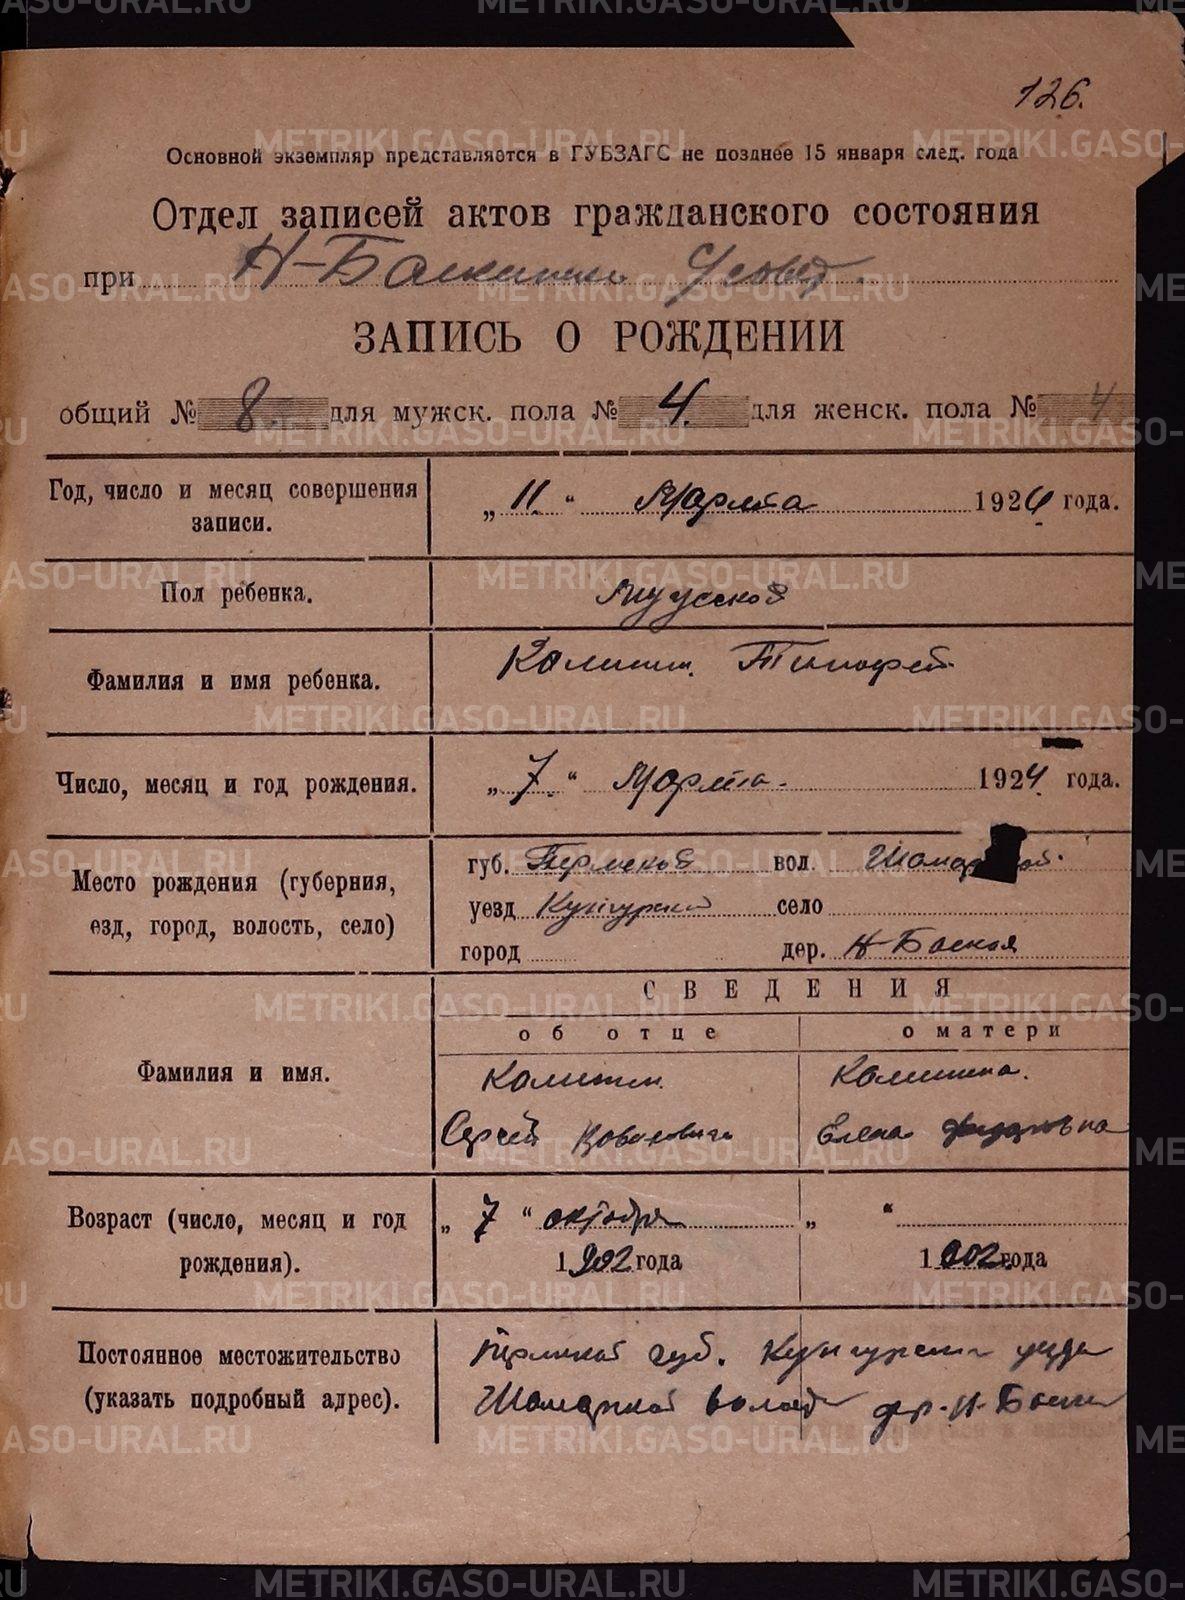 126.
Основной экземпляр представляется в ГУБЗАГС не позднее 15 января след. года
Отдел записей актов гражданского состояния
при Н-Баскинском
ЗАПИСЬ О РОЖДЕНИИ
общий № 8 для мужск. пола № 4. для женск. пола № 4
Год, число и месяц совершения записи. „ 11. “ Марта 1924 года.
Пол ребенка. Мужской
Фамилия и имя ребенка. Калинин. Тимофей
Число, месяц и год рождения. „ 7 “ Марта. 1924 года.
Место рождения (губерния, езд, город, волость, село)
губ. Пермской вол.
уезд Кунгурский село
город дер. Н-Баская
СВЕДЕНИЯ
об отце о матери
Фамилия и имя. Калинин Калинина.
Сергей Елена
Возраст (число, месяц и год рождения). „ 7 “ октября „ “
1902 года 1902 года
Постоянное местожительство (указать подробный адрес).
Пермской губ. Кунгурский уезда
METRIKI.GASO-URAL.RU